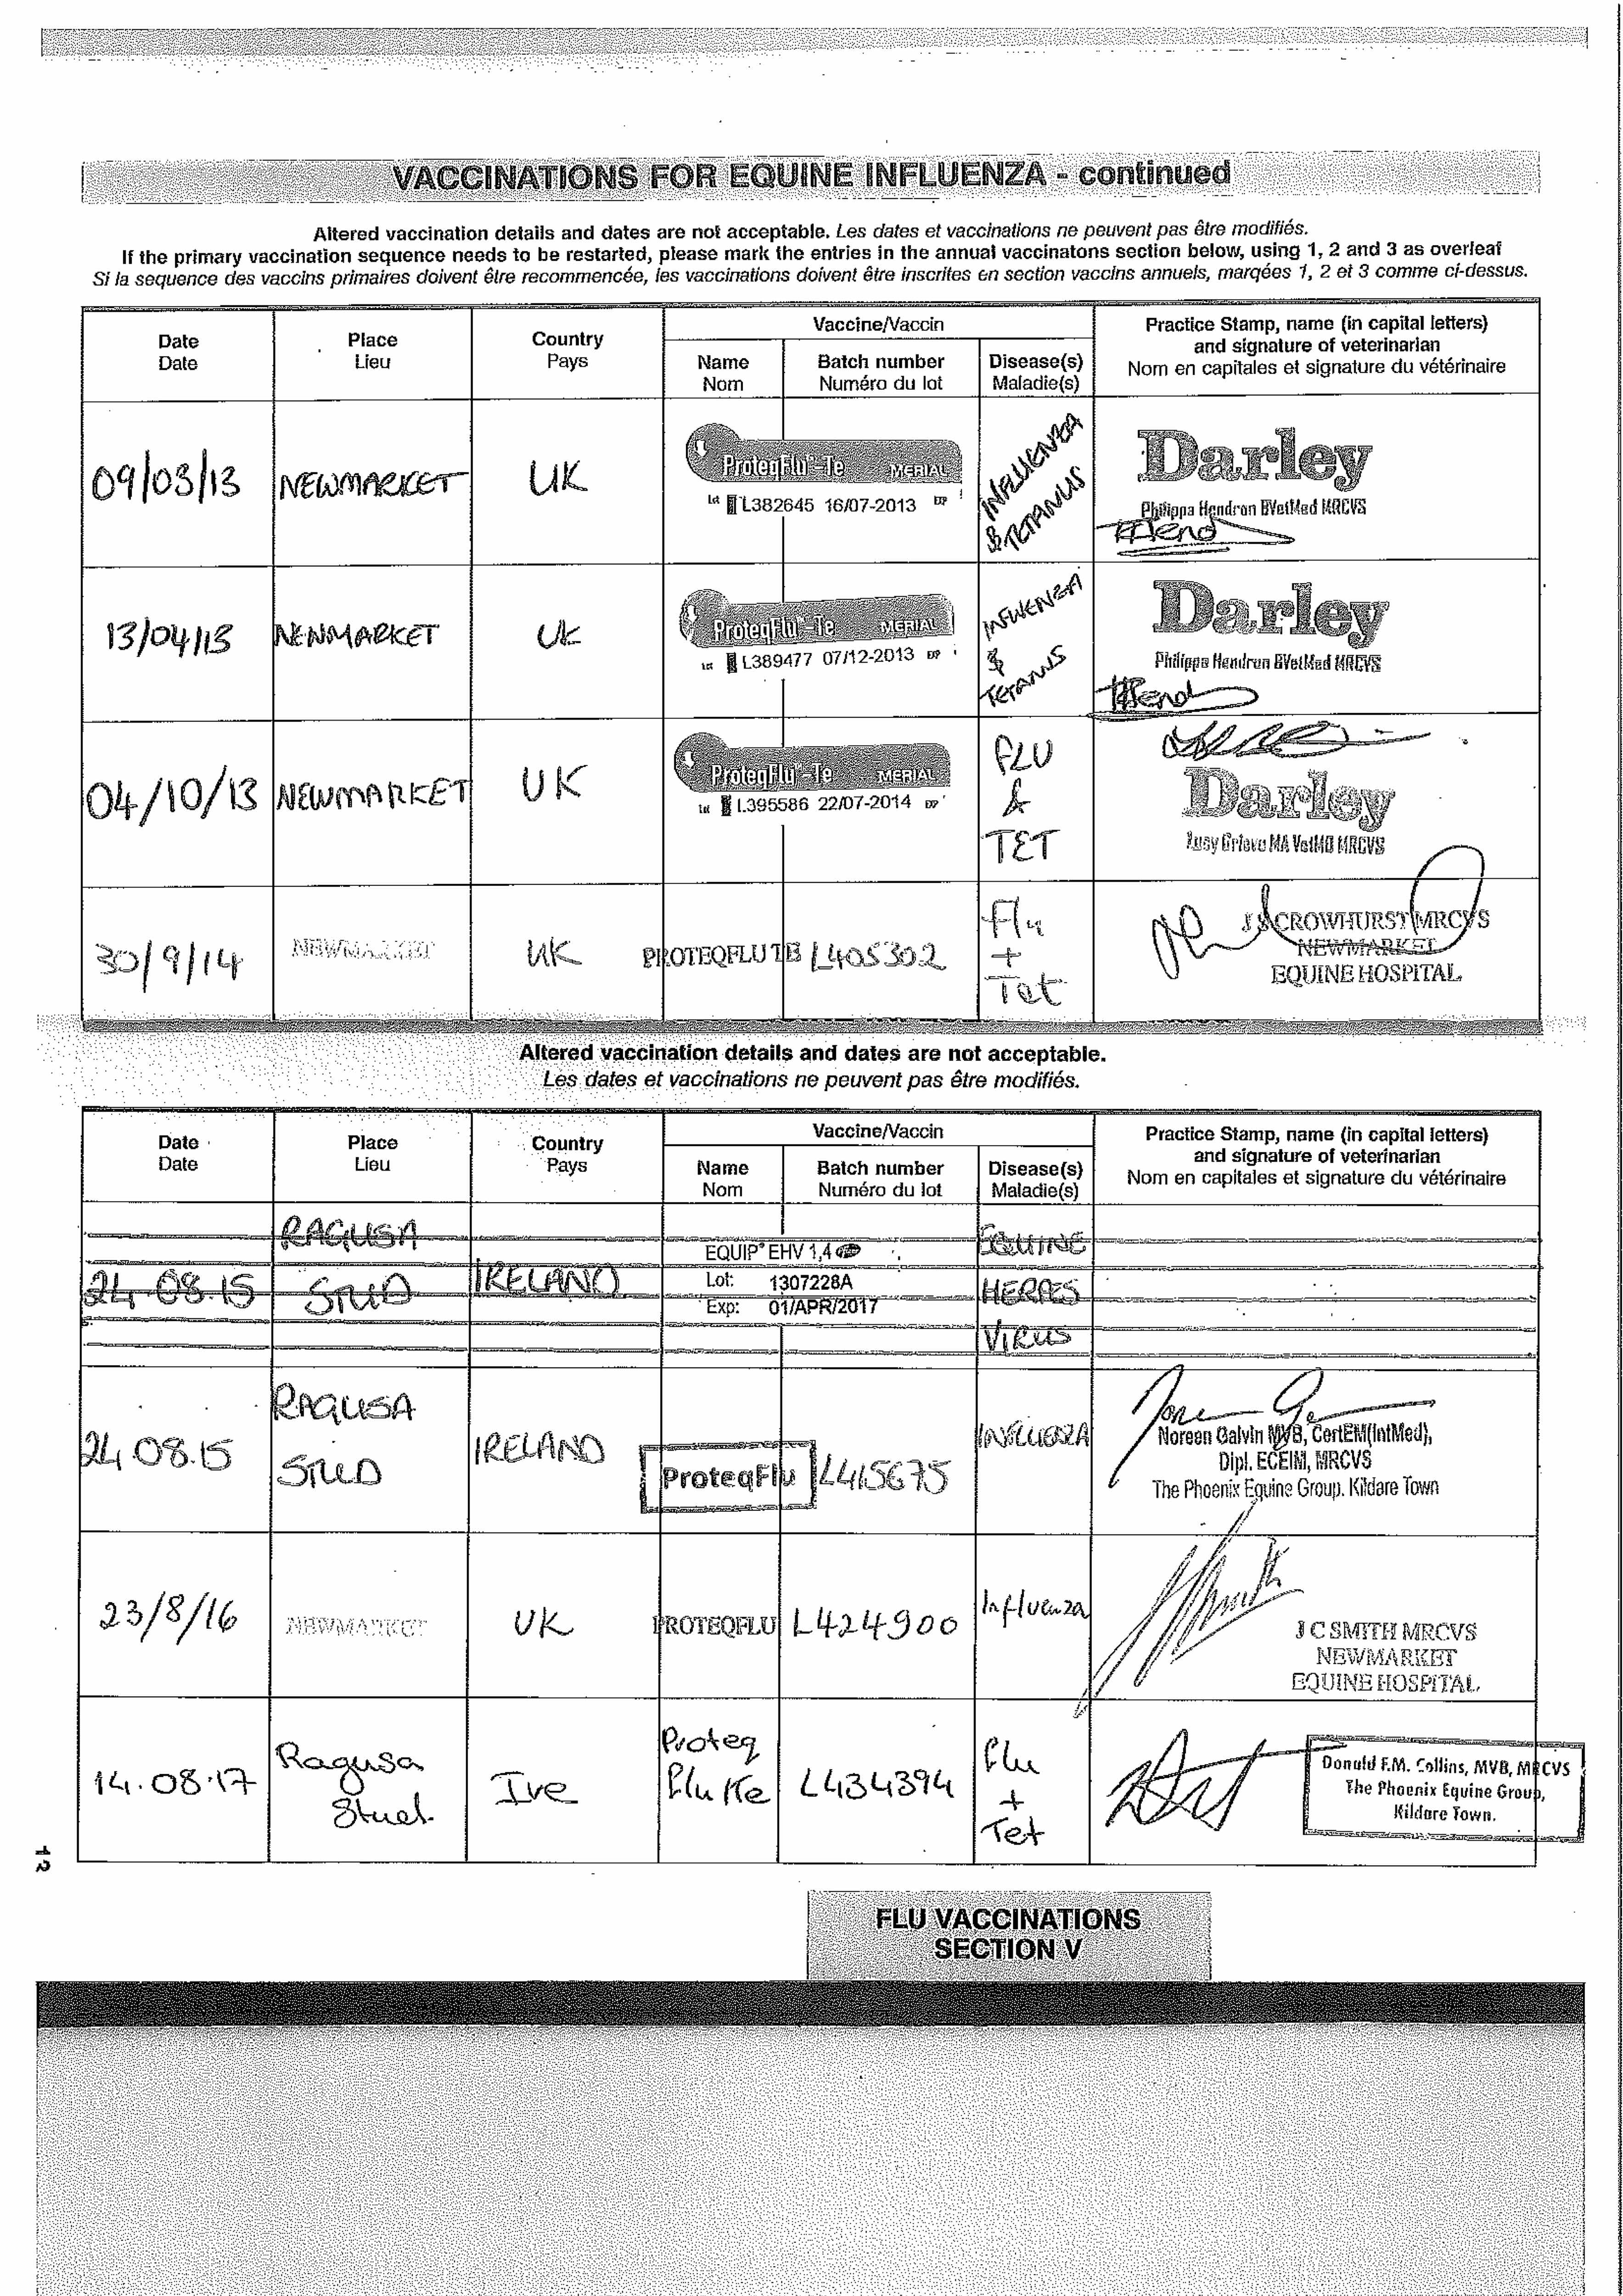 VACCINATIONS FOR EQUINE INFLUENZA - continued
Altered vaccination details and dates are not acceptable. Les dates et vaccinations ne peuvent pas être modifiés.
If the primary vaccination sequence needs to be restarted, please mark the entries in the annual vaccinatons section below, using 1, 2 and 3 as overleaf
Si la sequence des vaccins primaires doivent être recommencée, les vaccinations doivent être inscrites en section vaccins annuels, marqées 1, 2 et 3 comme ci-dessus.
Date
Date
Place
Lieu
Country
Pays
Vaccine/Vaccin
Name
Nom
Batch number
Numéro du lot
Disease(s)
Maladie(s)
Practice Stamp, name (in capital letters)
and signature of veterinarian
Nom en capitales et signature du vétérinaire
09/03/13
NEWMARKET
UK
ProteqFlu-Te MERIAL
Lot L382645 16/07-2013 EXP
INFLUENZA
& TETANUS
Darley
Philippa Hendron BVetMed MRCVS
13/04/13
NEWMARKET
UK
ProteqFlu-Te MERIAL
Lot L389477 07/12-2013 EXP
INFLUENZA
&
TETANUS
Darley
Philippa Hendron BVetMed MRCVS
04/10/13
NEWMARKET
UK
ProteqFlu-Te MERIAL
Lot L395586 22/07-2014 EXP
FLU
&
TET
Darley
Lucy Grieve MA VetMB MRCVS
30/9/14
NEWMARKET
UK
PROTEQFLU TE
L405302
Flu
+
Tet
J S CROWHURST MRCVS
NEWMARKET
EQUINE HOSPITAL
Altered vaccination details and dates are not acceptable.
Les dates et vaccinations ne peuvent pas être modifiés.
Date
Date
Place
Lieu
Country
Pays
Vaccine/Vaccin
Name
Nom
Batch number
Numéro du lot
Disease(s)
Maladie(s)
Practice Stamp, name (in capital letters)
and signature of veterinarian
Nom en capitales et signature du vétérinaire
24.08.15
RAGUSA
STUD
IRELAND
EQUIP EHV 1,4
Lot: 1307228A
Exp: 01/APR/2017
EQUINE
HERPES
VIRUS
24.08.15
RAGUSA
STUD
IRELAND
ProteqFlu
L415675
INFLUENZA
Noreen Galvin MVB, CertEM(IntMed),
Dipl. ECEIM, MRCVS
The Phoenix Equine Group. Kildare Town
23/8/16
NEWMARKET
UK
PROTEQFLU
L424900
Influenza
J C SMITH MRCVS
NEWMARKET
EQUINE HOSPITAL
14.08.17
Ragusa
Stud
Ire
Proteq
Flu Te
L434394
Flu
+
Tet
Donald F.M. Collins, MVB, MRCVS
The Phoenix Equine Group,
Kildare Town.
FLU VACCINATIONS
SECTION V